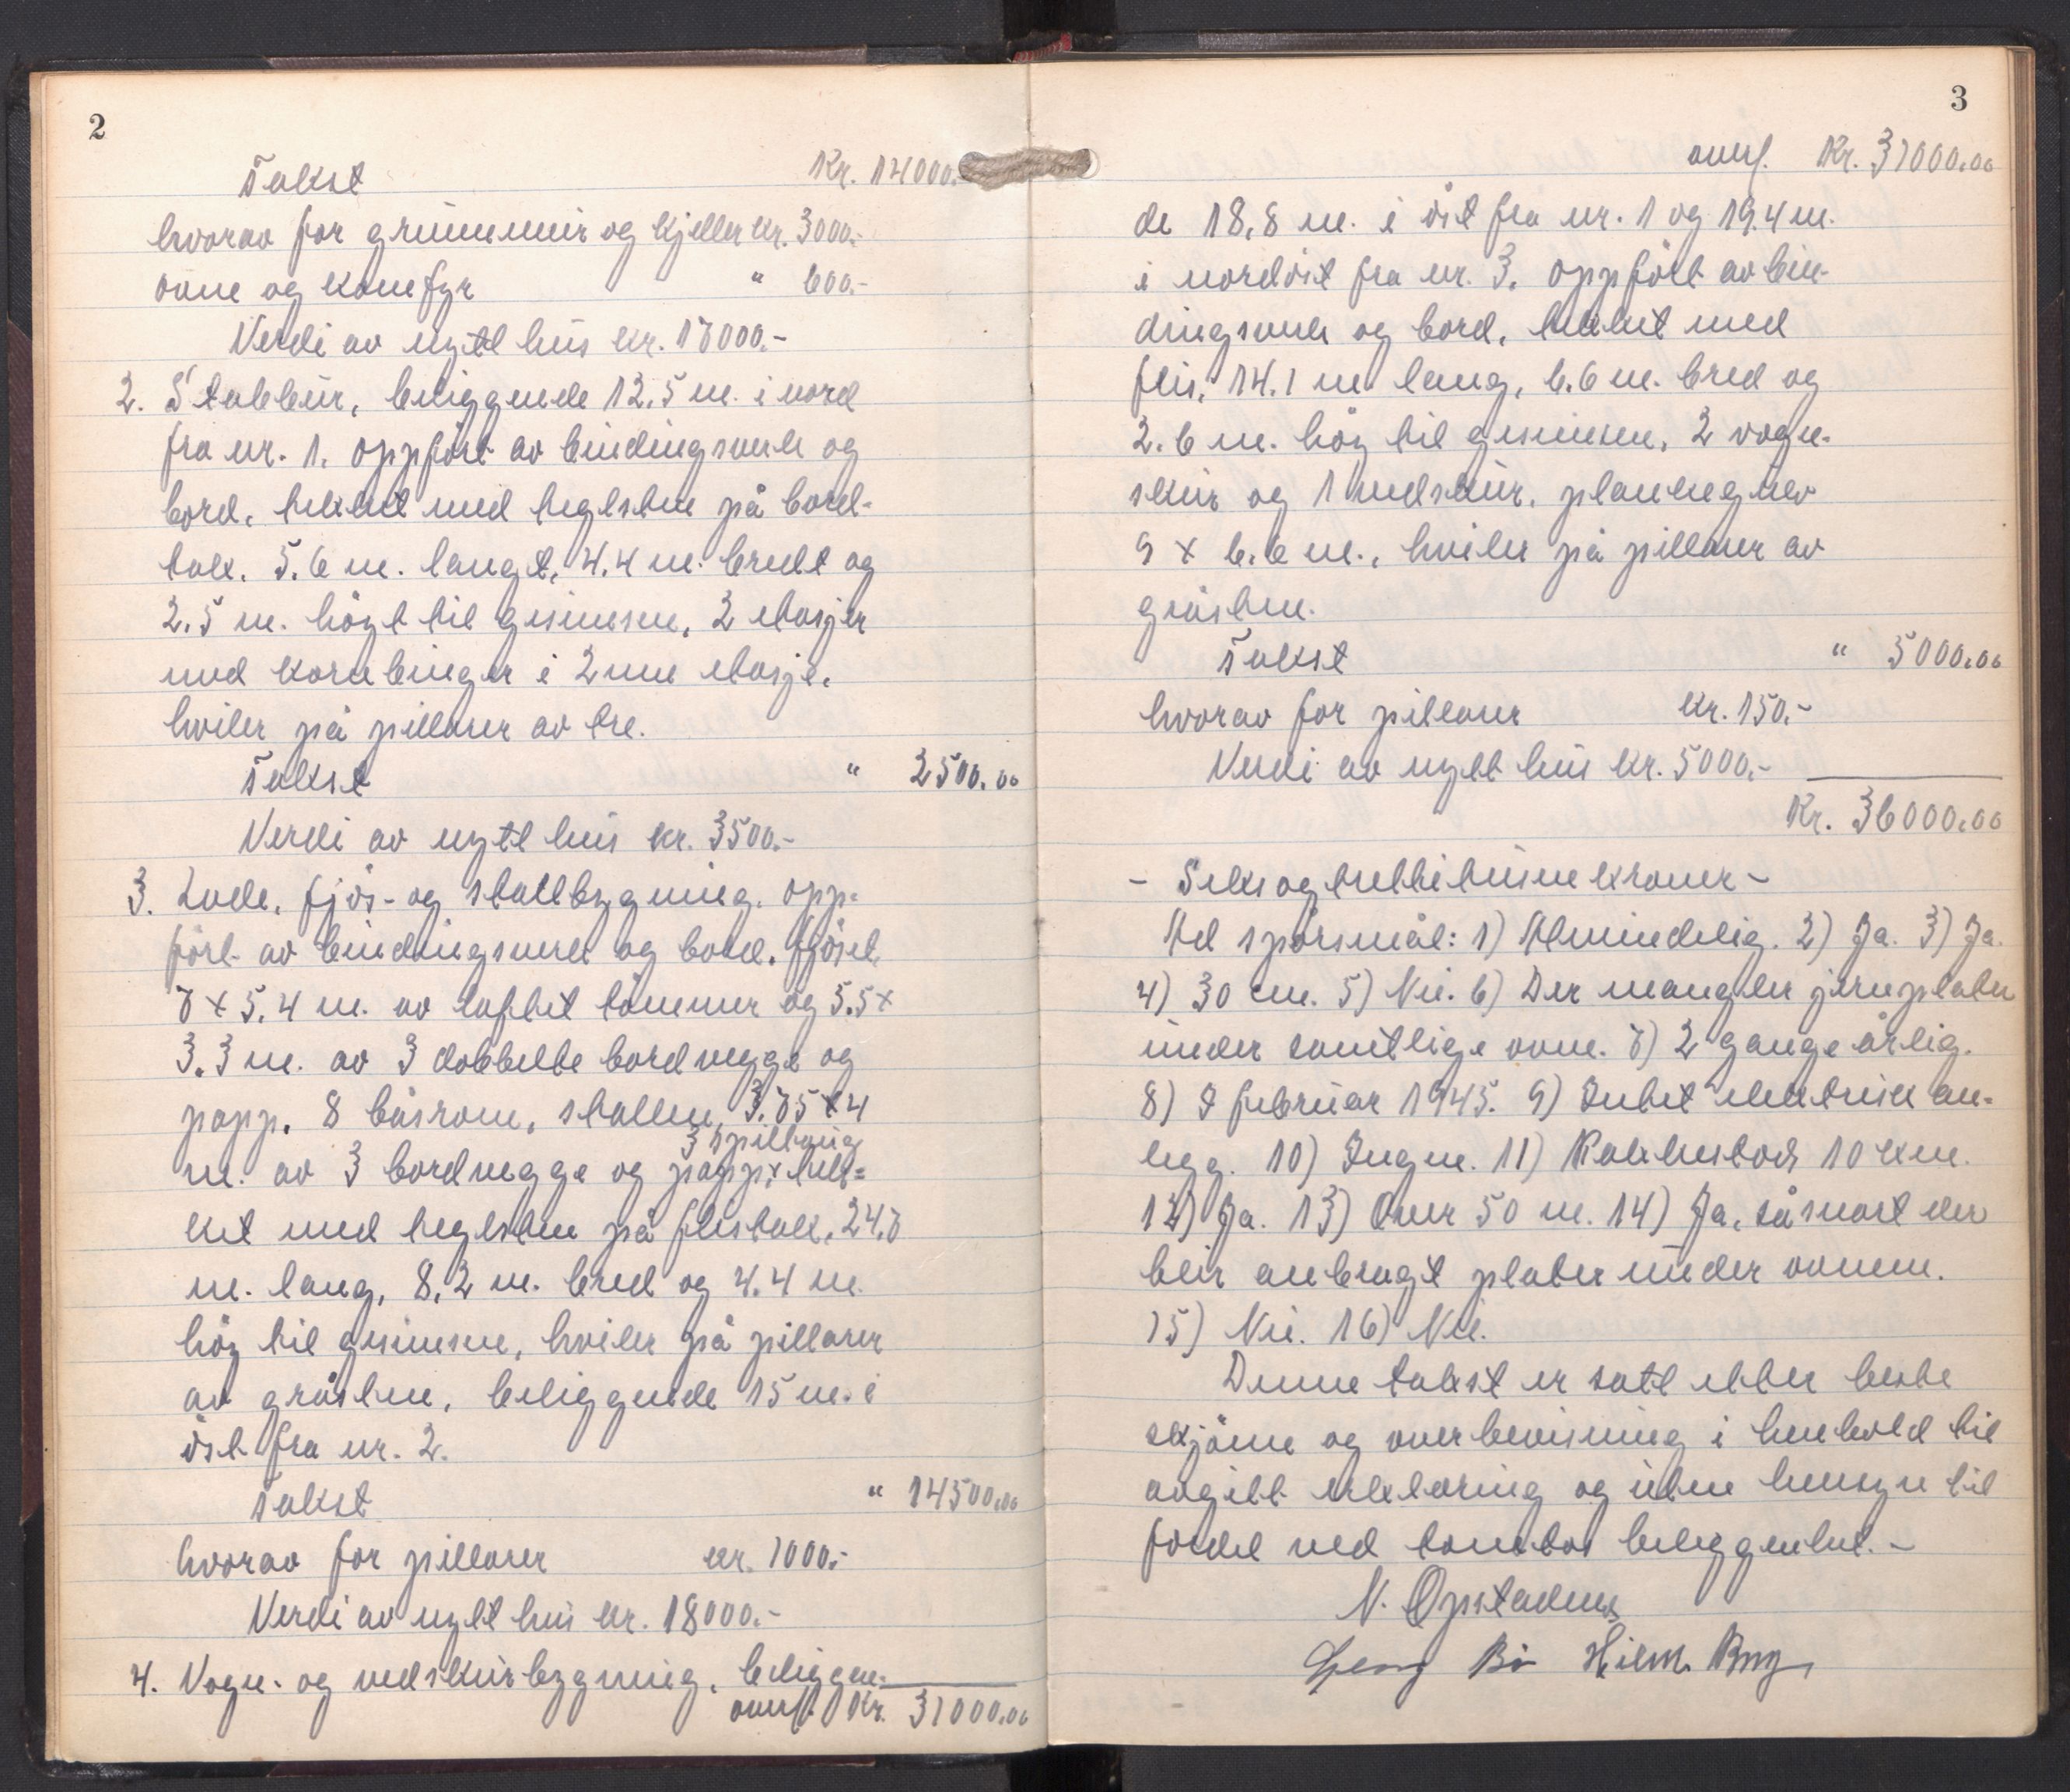 2
Takst Kr. 14000.-
hvorav for grunnmur og kjeller kr. 3000.-
ovne og komfyr " 600.-
Verdi av nytt hus kr. 17000.-
2. Stabbur, beliggende 12.5 m. i nord
fra nr. 1. oppført av bindingsverk og
bord, tekket med teglsten på bord-
tak. 5.6 m. langt, 4.4 m. bredt og
2.5 m. högt til gesimsen, 2 etasjer
med kornbinger i 2nen etasje.
hviler på pillarer av tre.
Takst " 2500.00
Verdi av nytt hus kr. 3500.-
3. Lade, fjøs- og stallbygning. opp-
ført av bindingsverk og bord. fjøset
7 x 5.4 m. av laftet tömmer og 5.5 x
3.3 m. av 3 dobbelte bordvegge og
papp. 8 båsrom, stallen, 3.75 x 4
3 spilltaug
m. av 3 bordvegge og papp, x tek-
ket med teglsten på flistak, 24.7
m. lang, 8.2 m. bred og 4.4 m.
høg til gesimsen, hviler på pillarer
av gråsten, beliggende 15 m. i
öst fra nr. 2.
Takst " 14500.00
hvorav for pillarer kr. 1000.-
Verdi av nytt hus kr. 18000.-
4. Vogn- og vedskurbygning, beliggen-
overf. Kr. 31000.00
3
overf. Kr. 31000.00
de 18.8 m. i öst fra nr. 1 og 19.4 m.
i nordöst fra nr. 3. oppført av bin-
dingsverk og bord, tekket med
flis, 14.1 m. lang, 6.6 m. bred og
2.6 m. høg til gesimsen, 2 vogn-
skur og 1 vedskur. plankegulv
9 x 6.6 m., hviler på pillarer av
gråsten.
Takst " 5000.00
hvorav for pillarer kr. 150.-
Verdi av nytt hus kr. 5000.-
Kr. 36000.00
- Seksogtrettitusen kroner -
Ad spörsmål: 1) Almindelig. 2) Ja. 3) Ja.
4) 30 cm. 5) Nei. 6) Der mangler jernplater
under samtlige ovne. 7) 2 gange årlig.
8) I februar 1945. 9) Intet elektrisk an-
legg. 10) Ingen. 11) Kakkestad 10 km.
12) Ja. 13) Over 50 m. 14) Ja, såsnart der
blir anbragt plater under ovnene.
15) Nei. 16) Nei.
Denne takst er satt etter beste
skjønn og overbevisning i henhold til
avgitt erklæring og uten hensyn til
fordel ved tomtas beliggenhet. -
N. Opstadenes
Georg Bö Hilm. Berg